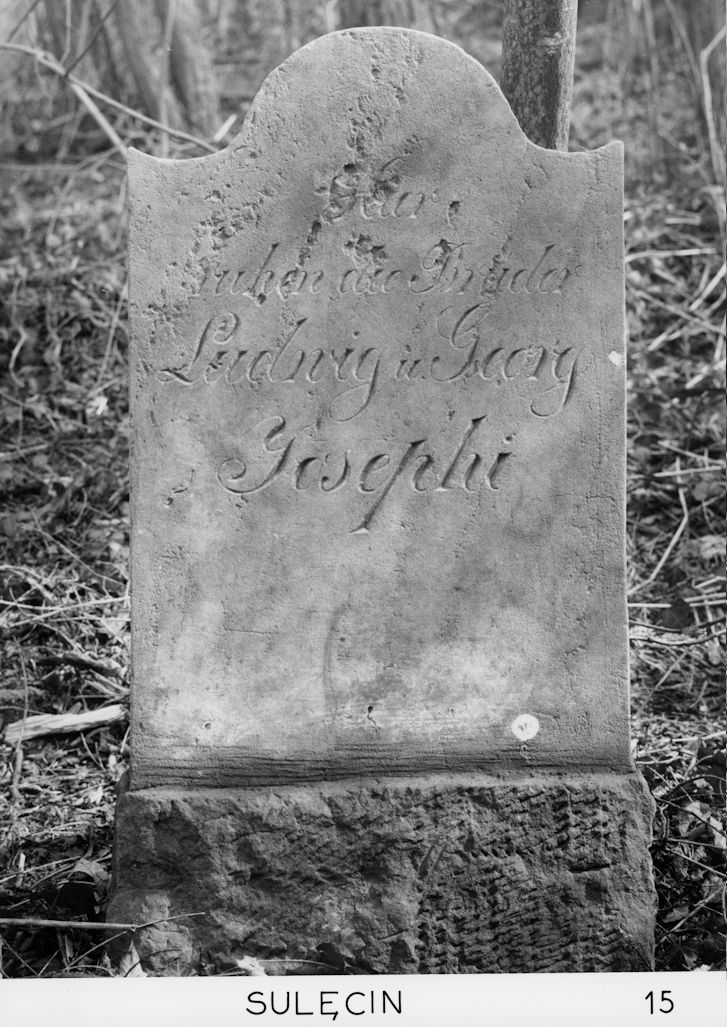 Hier
ruhen die Brüder
Ludwig u Georg
Josephi
SULĘCIN 15